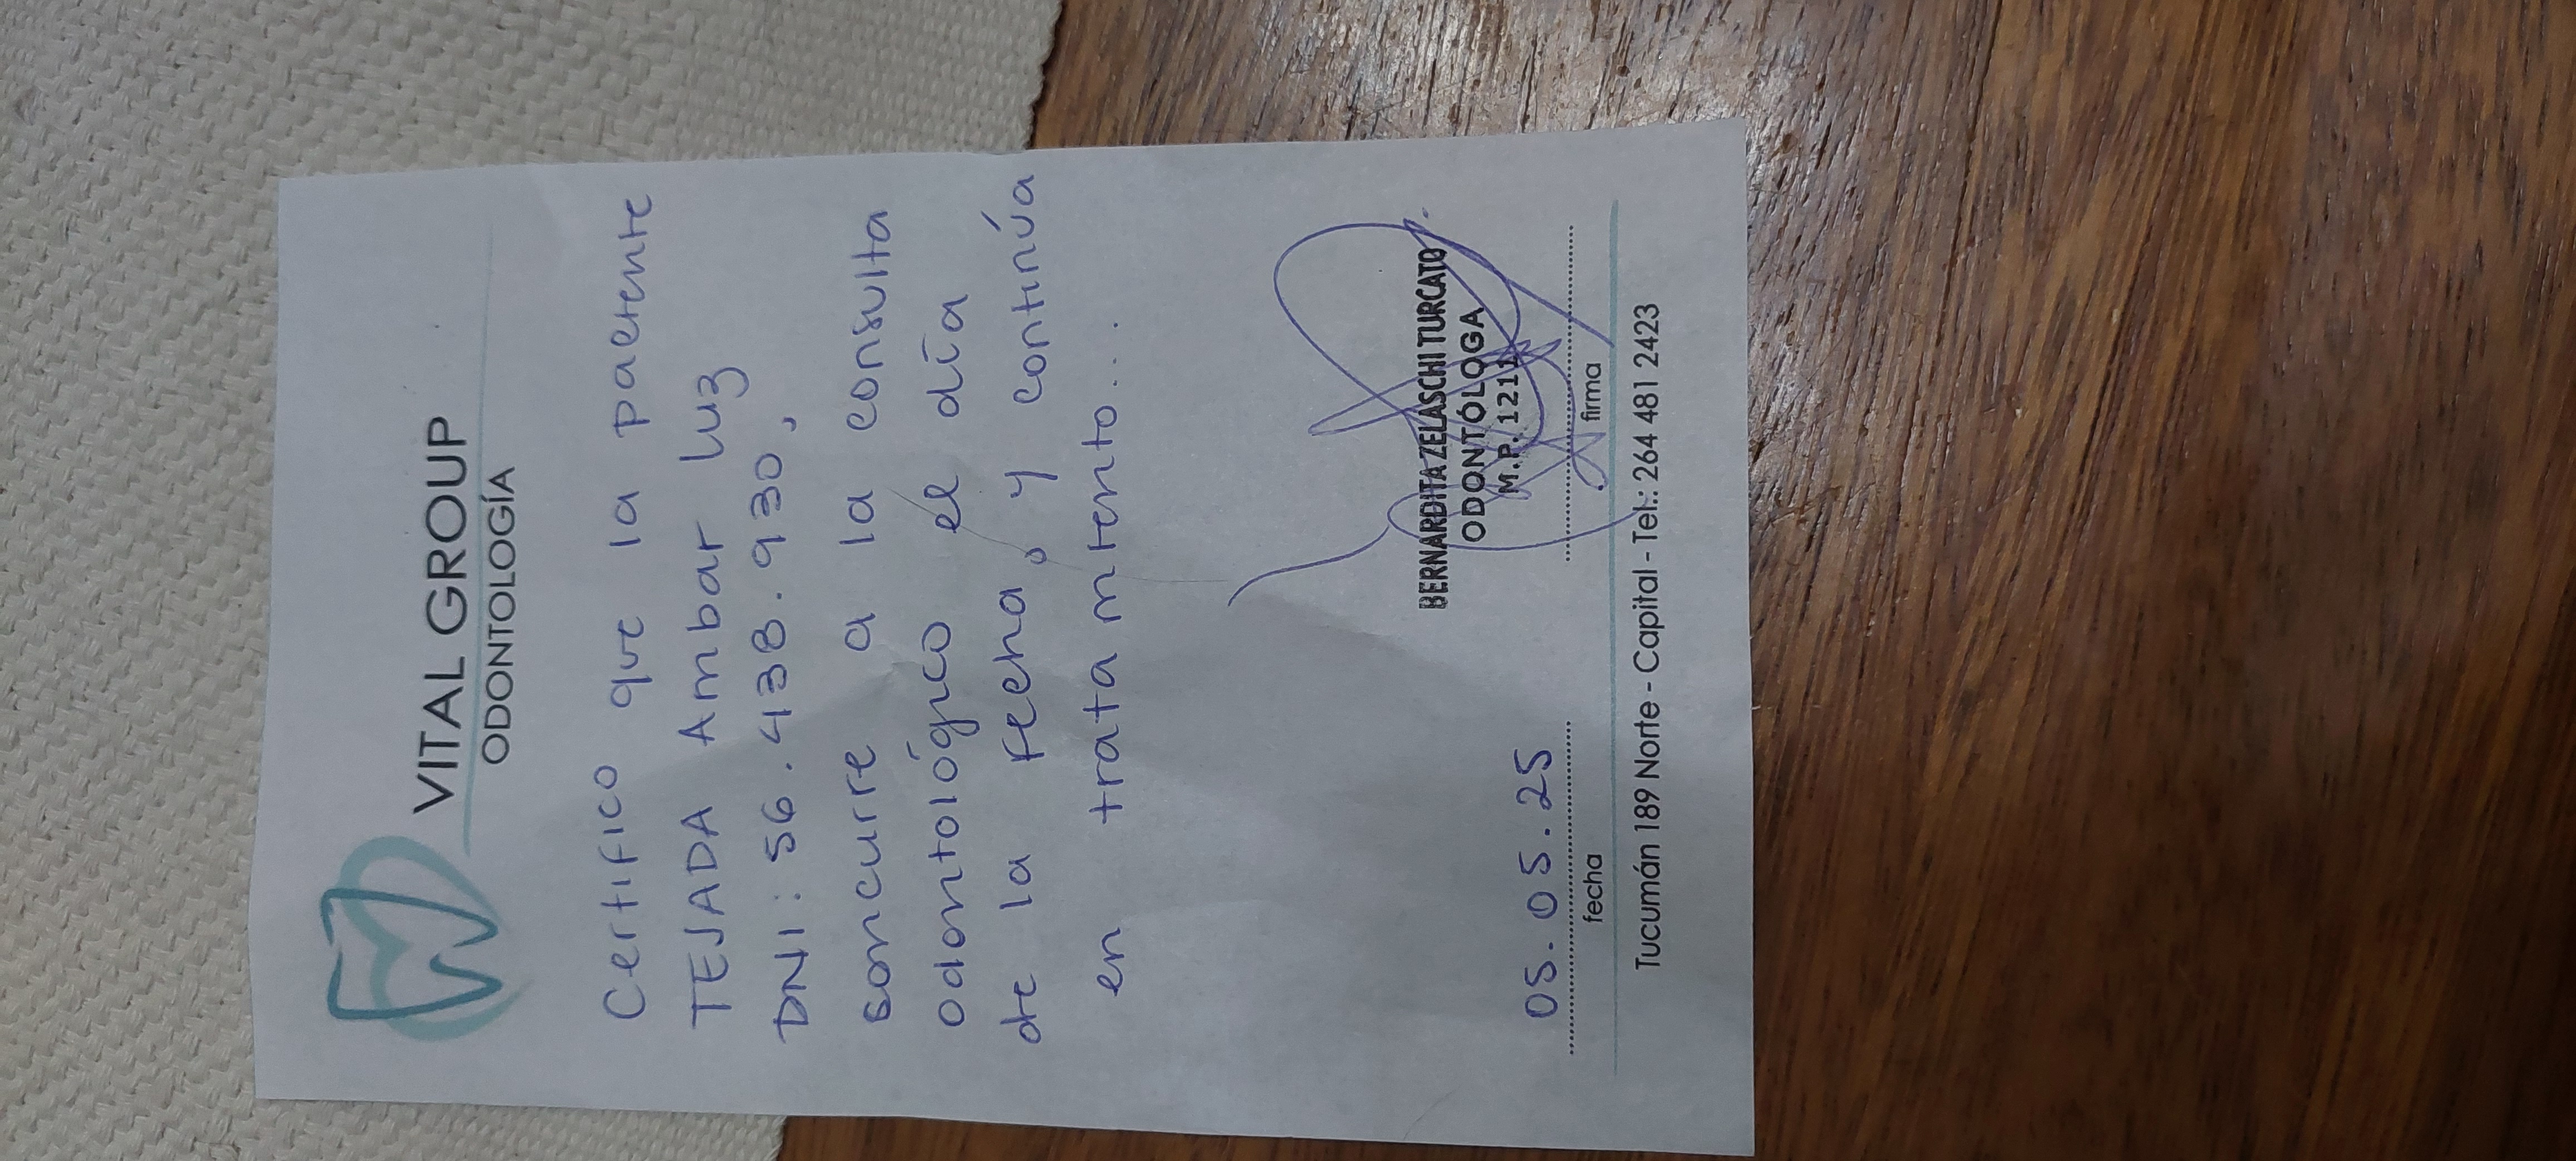 VITAL GROUP
ODONTOLOGÍA
Certifico que la paciente
TEJADA Ambar Luz
DNI: 56.438.930,
concurre a la consulta
odontológico el día
de la fecha, y continúa
en tratamiento...
BERNARDITA ZELASCHI TURCATO
ODONTÓLOGA
M.P. 1211
05.05.25
fecha firma
Tucumán 189 Norte - Capital - Tel.: 264 481 2423